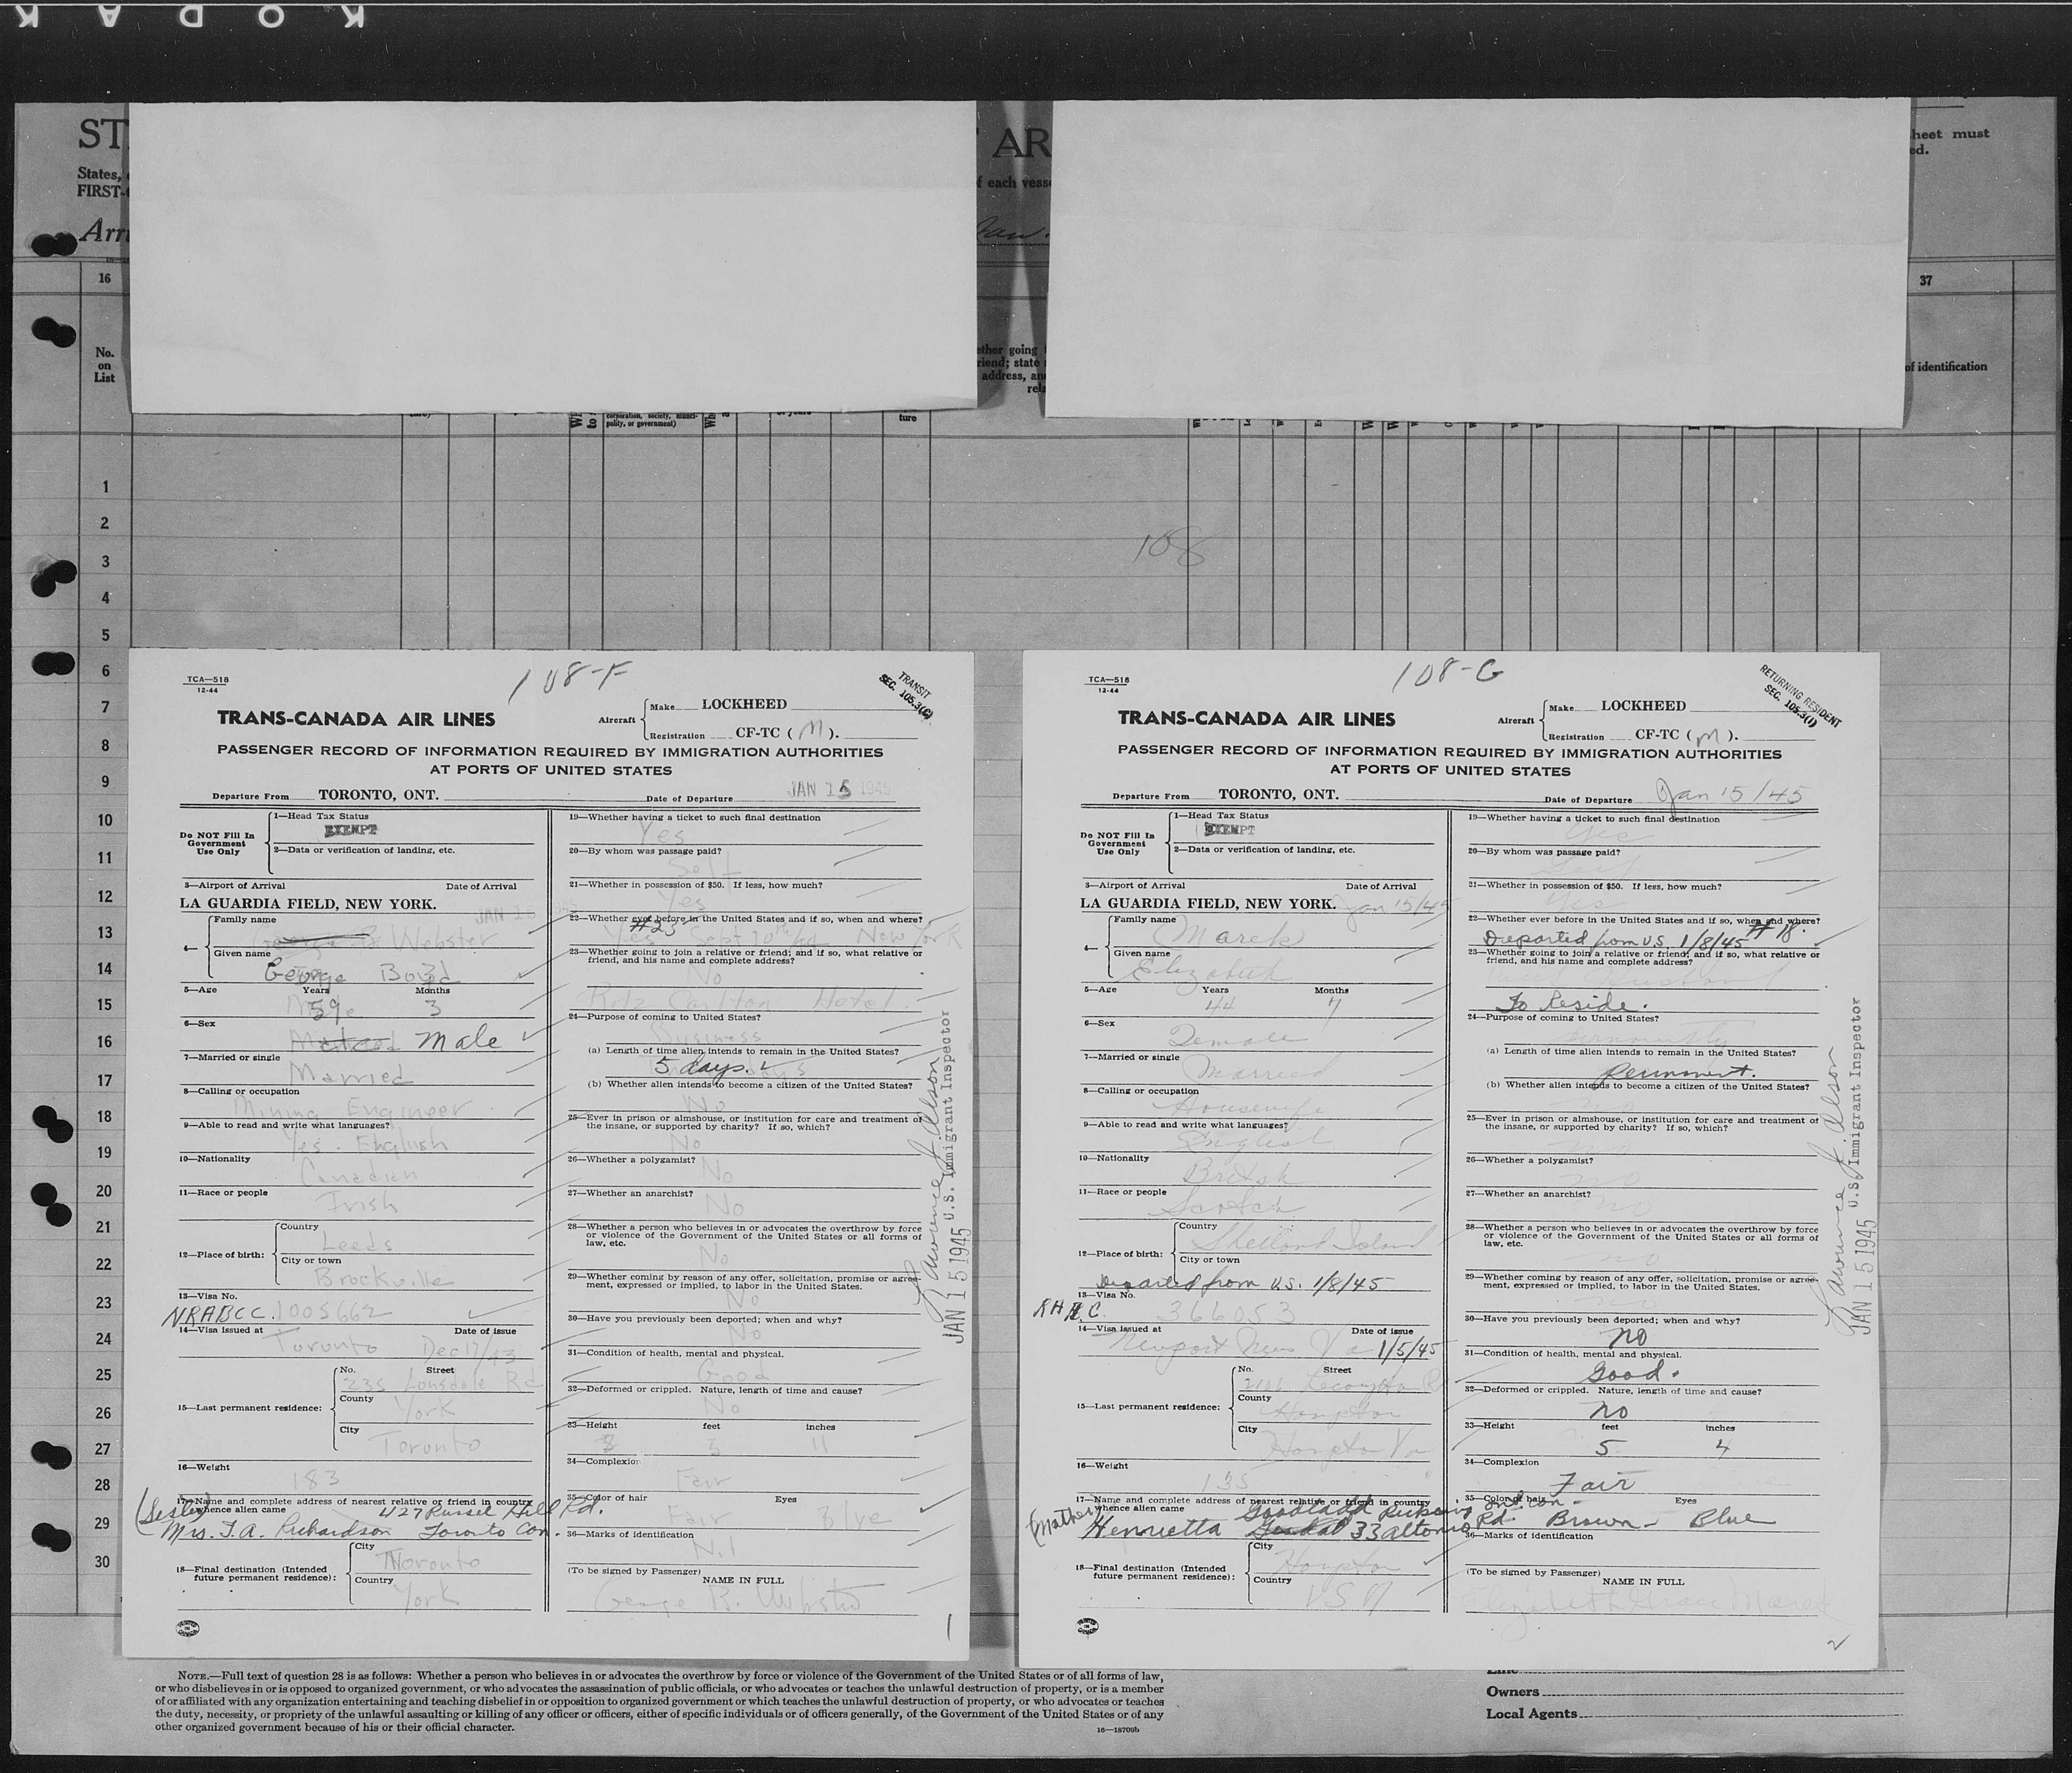 KODAK
ST
AR
heet must
ed.
States,
FIRST-
f each vess
Arr
Jan.
16
37
No.
on
List
ther going
riend; state
address, an
rel
of identification
corporation, society, munici-
pality, or government)
ture
1
2
3
4
5
6
7
8
9
10
11
12
13
14
15
16
17
18
19
20
21
22
23
24
25
26
27
28
29
30
108
TCA—518
12-44
108-F
TRANSIT
SEC. 105.3(C)
TRANS-CANADA AIR LINES
Aircraft
Make LOCKHEED
Registration CF-TC (M).
PASSENGER RECORD OF INFORMATION REQUIRED BY IMMIGRATION AUTHORITIES
AT PORTS OF UNITED STATES
Departure From TORONTO, ONT.
Date of Departure JAN 15 1945
Do NOT Fill In
Government
Use Only
1—Head Tax Status
EXEMPT
2—Data or verification of landing, etc.
3—Airport of Arrival Date of Arrival
LA GUARDIA FIELD, NEW YORK.
4—
Family name
Webster
Given name
George Boyd
5—Age Years Months
59 3
6—Sex
Male
7—Married or single
Married
8—Calling or occupation
Mining Engineer
9—Able to read and write what languages?
Yes. English
10—Nationality
Canadian
11—Race or people
Irish
12—Place of birth:
Country
Leeds
City or town
Brockville
13—Visa No.
NRABCC. 1005662
14—Visa issued at Date of issue
Toronto Dec 17/43
15—Last permanent residence:
No. Street
235 Lonsdale Rd
County
York
City
Toronto
16—Weight
183
17—Name and complete address of nearest relative or friend in country
whence alien came
(Sister) 427 Russel Hill Rd.
Mrs. T.A. Richardson Toronto Can.
18—Final destination (Intended
future permanent residence):
City
Toronto
Country
York
19—Whether having a ticket to such final destination
Yes
20—By whom was passage paid?
Self
21—Whether in possession of $50. If less, how much?
Yes
22—Whether ever before in the United States and if so, when and where?
#23
Yes Sept 10th/44 New York
23—Whether going to join a relative or friend; and if so, what relative or
friend, and his name and complete address?
No
Ritz Carlton Hotel.
24—Purpose of coming to United States?
Business
(a) Length of time alien intends to remain in the United States?
5 days.
(b) Whether alien intends to become a citizen of the United States?
No
25—Ever in prison or almshouse, or institution for care and treatment of
the insane, or supported by charity? If so, which?
No
26—Whether a polygamist?
No
27—Whether an anarchist?
No
28—Whether a person who believes in or advocates the overthrow by force
or violence of the Government of the United States or all forms of
law, etc.
No
29—Whether coming by reason of any offer, solicitation, promise or agree-
ment, expressed or implied, to labor in the United States.
No
30—Have you previously been deported; when and why?
No
31—Condition of health, mental and physical.
Good
32—Deformed or crippled. Nature, length of time and cause?
No
33—Height feet inches
5 11
34—Complexion
Fair
35—Color of hair Eyes
Fair Blue
36—Marks of identification
N.I
(To be signed by Passenger)
NAME IN FULL
George B. Webster
1
JAN 15 1945 U.S. Immigrant Inspector
TCA—518
12-44
108-G
RETURNING RESIDENT
SEC. 105.3(1)
TRANS-CANADA AIR LINES
Aircraft
Make LOCKHEED
Registration CF-TC (M).
PASSENGER RECORD OF INFORMATION REQUIRED BY IMMIGRATION AUTHORITIES
AT PORTS OF UNITED STATES
Departure From TORONTO, ONT.
Date of Departure Jan 15/45
Do NOT Fill In
Government
Use Only
1—Head Tax Status
EXEMPT
2—Data or verification of landing, etc.
3—Airport of Arrival Date of Arrival
LA GUARDIA FIELD, NEW YORK. Jan 15/45
4—
Family name
Marek
Given name
Elizabeth
5—Age Years Months
44 7
6—Sex
Female
7—Married or single
Married
8—Calling or occupation
Housewife
9—Able to read and write what languages?
English
10—Nationality
British
11—Race or people
Scotch
12—Place of birth:
Country
Shetland Island
City or town
Departed from U.S. 1/8/45
13—Visa No.
366053
14—Visa issued at Date of issue
Newport News Va 1/5/45
15—Last permanent residence:
No. Street
County
Hampton
City
Hampton Va
16—Weight
135
17—Name and complete address of nearest relative or friend in country
whence alien came
(Mother)
Henrietta 33 Altona Rd.
18—Final destination (Intended
future permanent residence):
City
Hampton
Country
USA
19—Whether having a ticket to such final destination
Yes
20—By whom was passage paid?
21—Whether in possession of $50. If less, how much?
Yes
22—Whether ever before in the United States and if so, when and where?
# 18.
Departed from U.S. 1/8/45
23—Whether going to join a relative or friend; and if so, what relative or
friend, and his name and complete address?
To Reside.
24—Purpose of coming to United States?
(a) Length of time alien intends to remain in the United States?
Permanent.
(b) Whether alien intends to become a citizen of the United States?
25—Ever in prison or almshouse, or institution for care and treatment of
the insane, or supported by charity? If so, which?
26—Whether a polygamist?
no
27—Whether an anarchist?
no
28—Whether a person who believes in or advocates the overthrow by force
or violence of the Government of the United States or all forms of
law, etc.
no
29—Whether coming by reason of any offer, solicitation, promise or agree-
ment, expressed or implied, to labor in the United States.
no
30—Have you previously been deported; when and why?
no
31—Condition of health, mental and physical.
Good.
32—Deformed or crippled. Nature, length of time and cause?
no
33—Height feet inches
5 4
34—Complexion
Fair
35—Color of hair Eyes
Brown - Blue
36—Marks of identification
(To be signed by Passenger)
NAME IN FULL
Elizabeth Grace Marek
2
JAN 15 1945 U.S. Immigrant Inspector
NOTE.—Full text of question 28 is as follows: Whether a person who believes in or advocates the overthrow by force or violence of the Government of the United States or of all forms of law,
or who disbelieves in or is opposed to organized government, or who advocates the assassination of public officials, or who advocates or teaches the unlawful destruction of property, or is a member
of or affiliated with any organization entertaining and teaching disbelief in or opposition to organized government or which teaches the unlawful destruction of property, or who advocates or teaches
the duty, necessity, or propriety of the unlawful assaulting or killing of any officer or officers, either of specific individuals or of officers generally, of the Government of the United States or of any
other organized government because of his or their official character.
16—18709b
Line
Owners
Local Agents